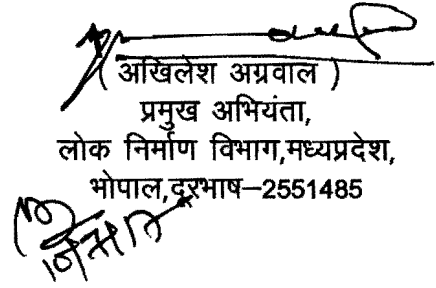 ( अखिलेश अग्रवाल )
प्रमुख अभियंता,
लोक निर्माण विभाग,मध्यप्रदेश,
भोपाल,दूरभाष–2551485